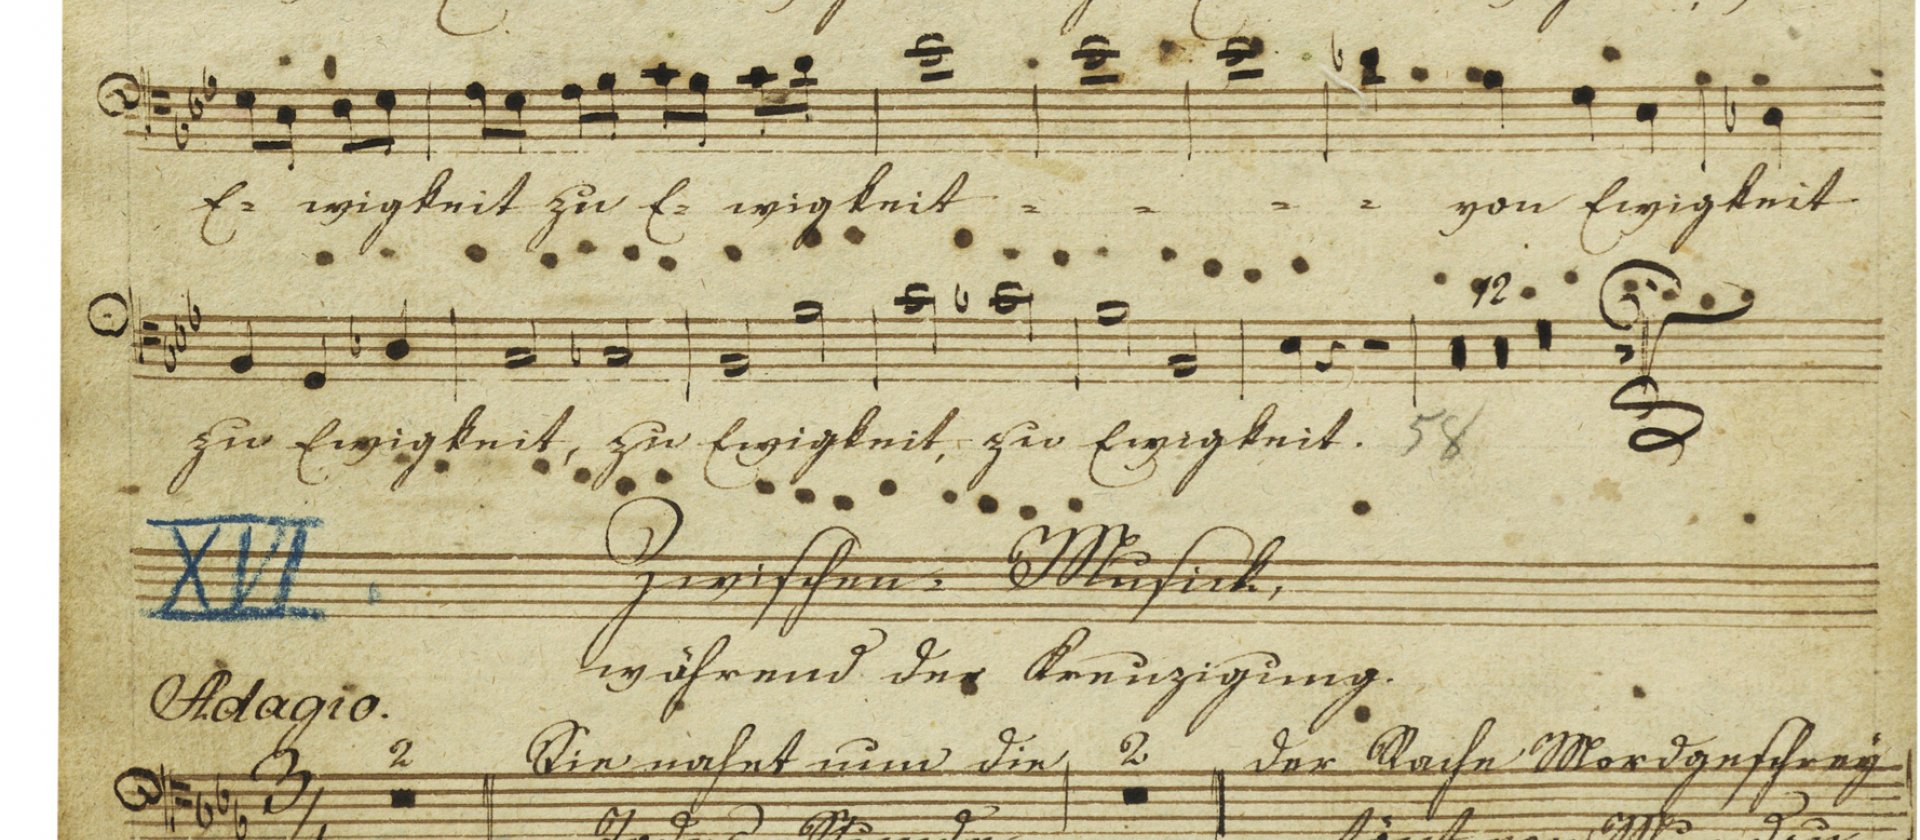 E= wigkeit zu E= wigkeit = = = = von Ewigkeit
12
zu Ewigkeit, zu Ewigkeit, zu Ewigkeit.
58
XVI.
Zwischen= Musick,
während der Kreuzigung.
Adagio.
2 Sie nahet nun die 2 der Rache Mordgeschrey
3/4
Todes Stunde